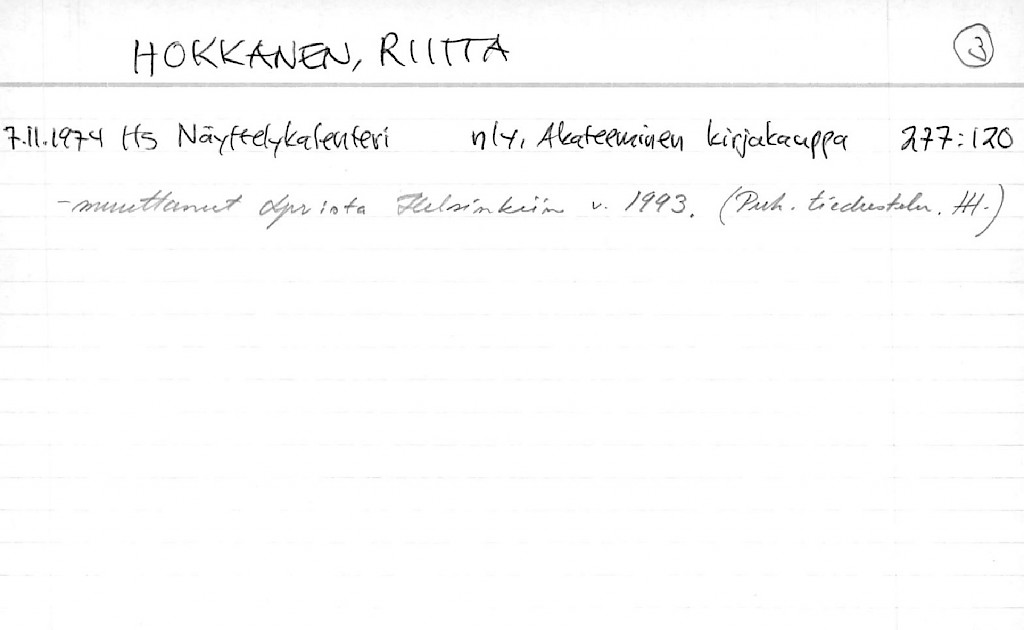 HOKKANEN, RIITTA 3
7.11.1974 HS Näyttelykalenteri n/y, Akateeminen kirjakauppa 277:120
-muuttanut Helsinkiin v. 1993. (Puh. tiedustelu. HH.)